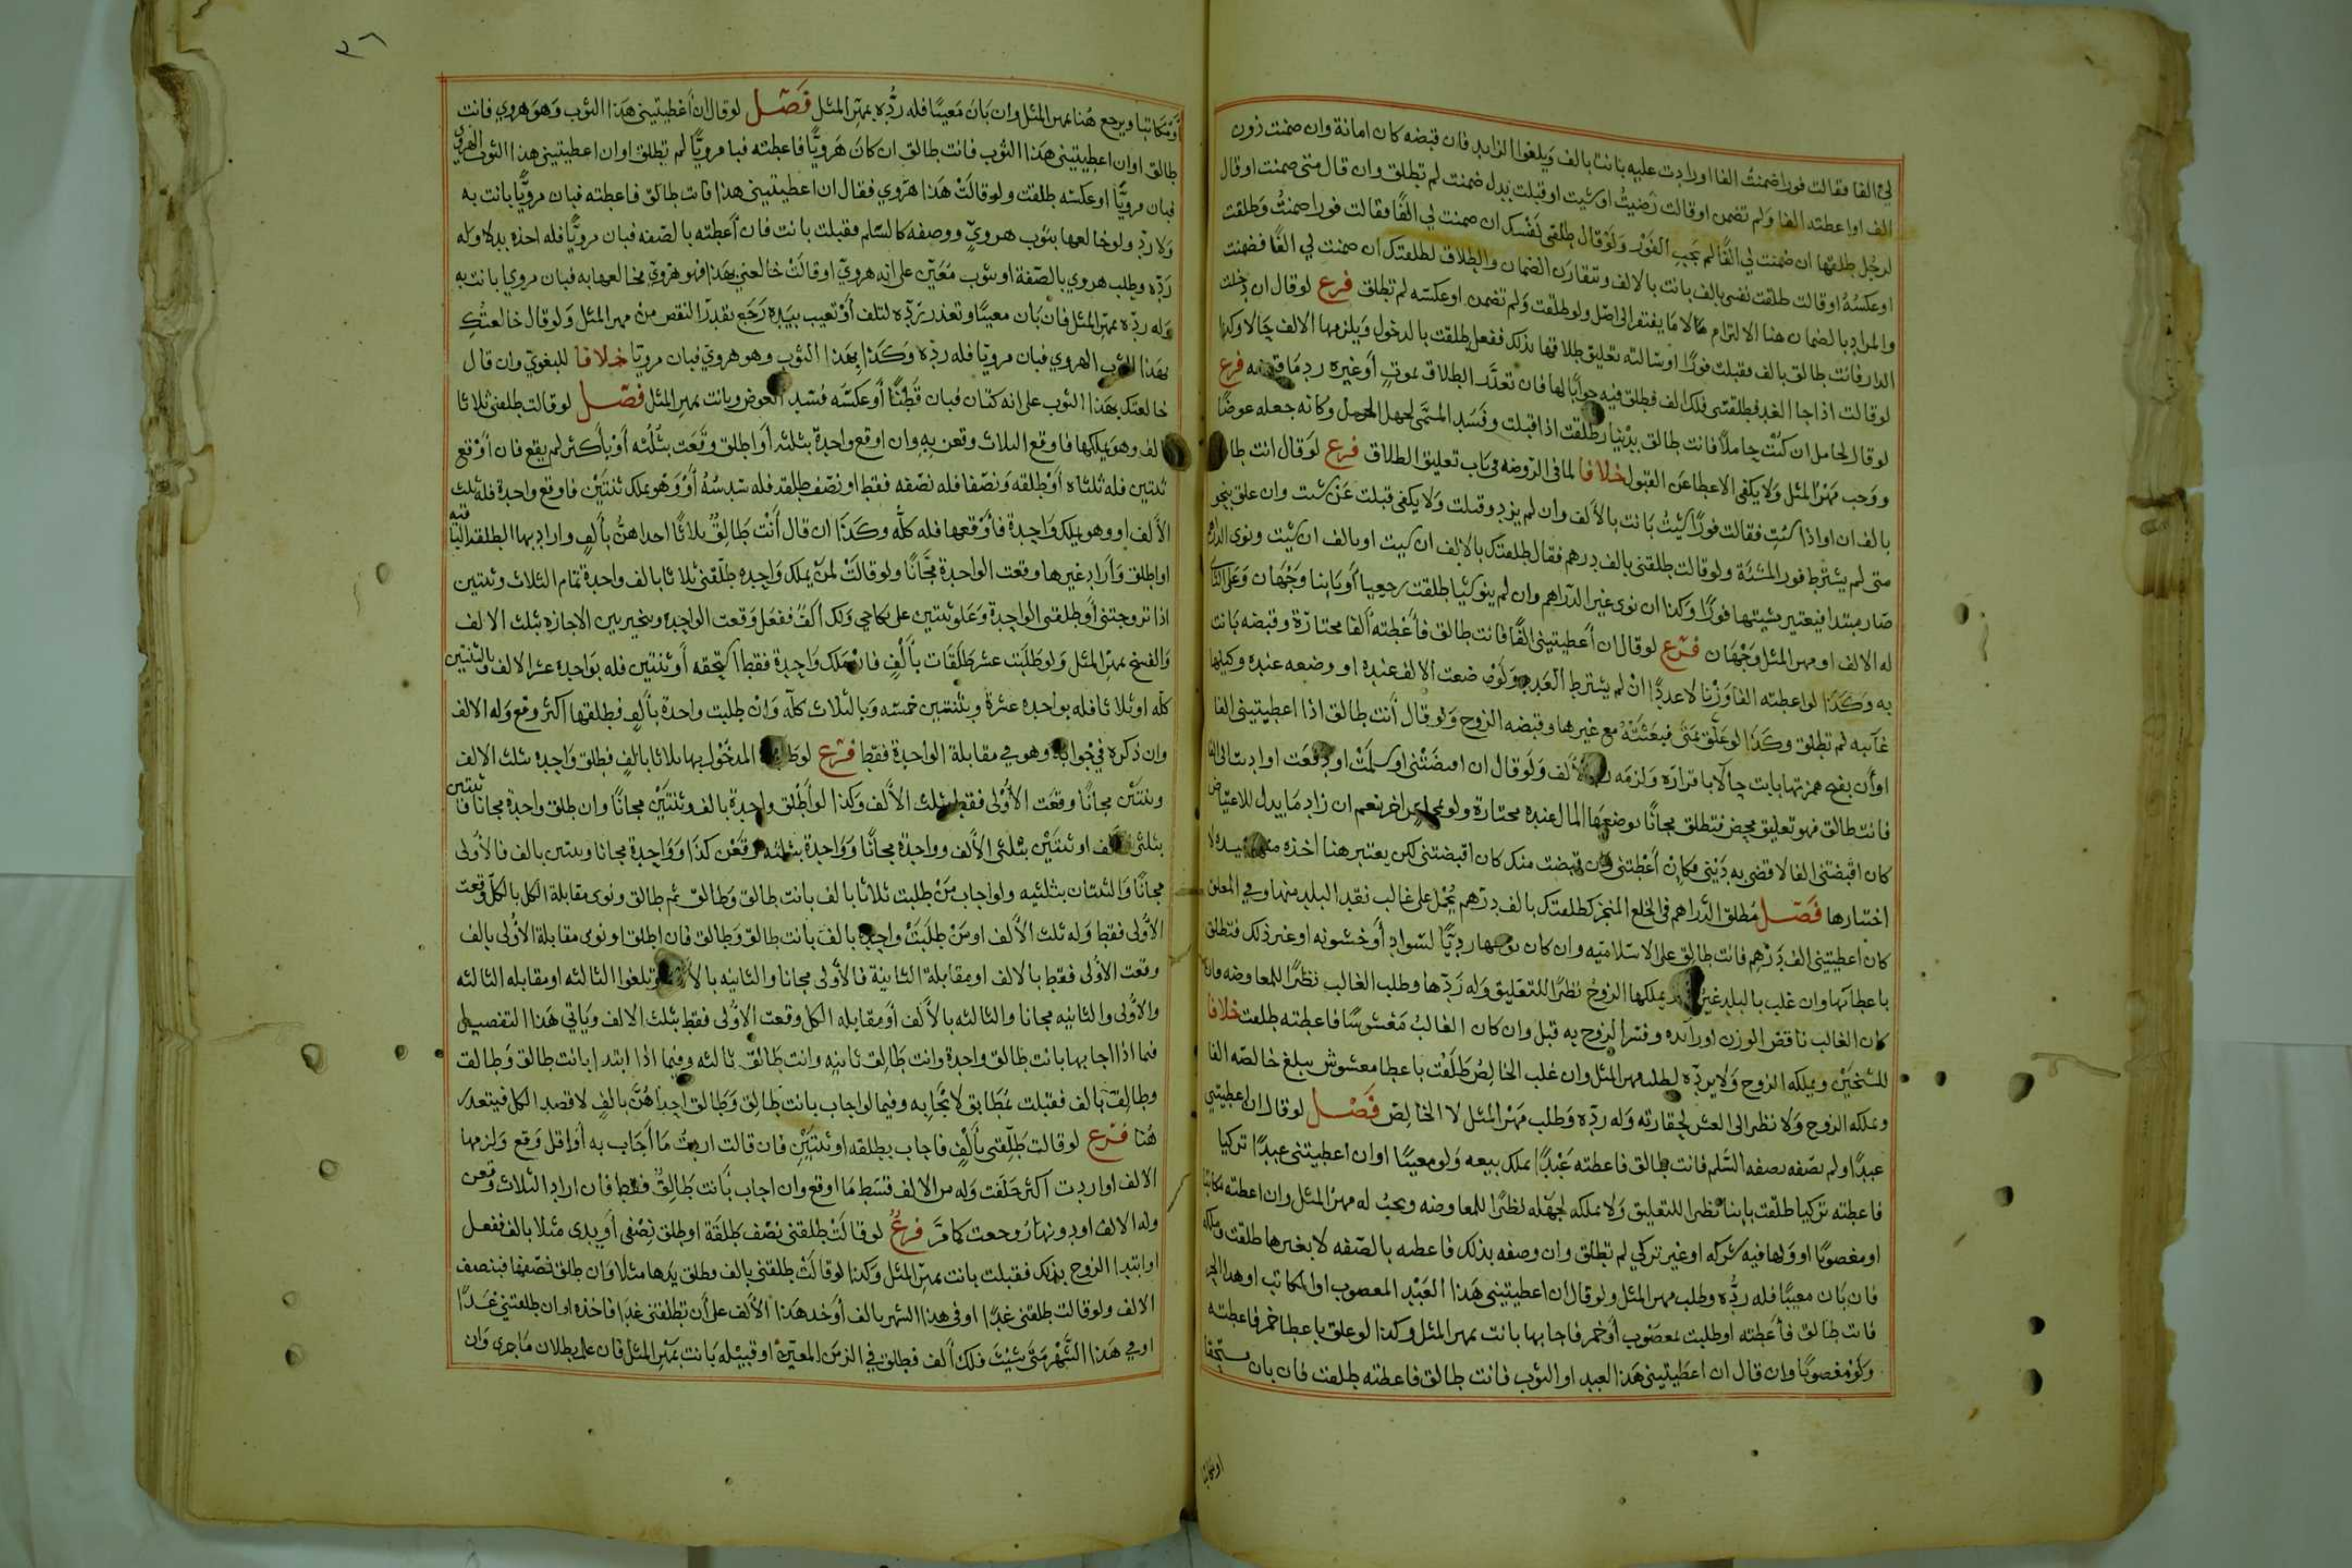 لي الفا فقالت فورا ضمنتُ الفا اورادت عليه بانت بالف ويلغوا الزايد فان قبضه كان امانة وان ضمنت دون
الف او اعطته الفا ولم تضمن اوقالت رضيتُ او شيت او قبلت بدل ضمنت لم تطلق وان قال متى ضمنت اوقال
لرجُل طلقها ان ضمنت لي الفًا لم يجب الفَوْر ولَوْ قال طلقى نفْسك ان ضمنت لي الفًا فقالت فورا ضمنتُ وطلقت
اوعكسُهُ اوقالت طلقت نفسى بالف بانت بالالف ويتقارن الضمان والطلاق لطلقتك ان ضمنت لي الفًا فضمنت
والمراد بالضمان هنا الالتزام مالا ما يفتقر الى اصل ولو طلقت ولم تضمن اوعكسه لم تطلق فرع لوقال ان دخلت
الدار فانت طالق بالف فقبلت فورًا اوسالته تعليق طلاقها بذلك ففعل طلقت بالدخول ويلزمها الالف حالا وكذا
لوقالت اذا جا الغد فطلقنى فلك الف فطلق فيه جوابًا لها فان تعذر الطلاق بموتٍ أوغيره رد ما قبضه فرع
لوقال لحامل ان كنْت حاملًا فانت طالق بدينار طلقت اذا قبلت وفسد المسمَّى لجهل الحمل وكانه جعله عوضًا
ووجب مَهْرُ المثل وَلا يكفى الاعطا عَن القبول خلافا لما فى الروضه في باب تعليق الطلاق فرع لوقال انت طالق
بالف ان او اذا شئتِ فقالت فورًا شيتُ بانت بالألف وان لم يزد وقبلت وَلا يكفى قبلت عَن شئت وان علق بنحو
متى لم يشترط فور المشئة ولوقالت طلقنى بالف درهم فقال طلقتك بالالف ان شيت اوبالف ان شيت ونوى الدراهم
صار مبتدا فيعتبر مشيتها فورًا وكذا ان نوى غير الدراهم وان لم ينو شيًا طلقت رجعيا أوباينا وجْهان وعلى الثانى
له الالف او مهر المثل وجْهان فرع لوقال ان أعطيتينى الفًا فانت طالق فأعْطته ألفا مختارة وقبضه بانت
به وكذا لو اعطته الفا وزْنا لا عددًا ان لم يشترط العدد ولَوْ وضعت الالف عنده او وضعه عنده وكيلها
غآيبه لم تطلق وكذا لو علَّق بمَتَى فبعَثَتْهُ مع غيرها وقبضه الزوج ولوقال أنت طالق اذا اعطيتينى الفا
اوأن بفتح همزتها بانت حالًا باقراره ولزمه رد الألف ولوقال ان اقبضتنى اوسلمت او دفعت او اديت الى الفا
فانت طالق فهو تعليق محض فتطلق مجانًا بوضعها المال عنده مختارة ولو بمجلس اخر نعم ان زاد ما يدل للاعتياض
كان اقْبضتنى الفا لاقضى به دَيْنى فكان أعْطتنى وان قبضت منك كان اقبضتنى لكن يعتبر هنا اخذه منها بيده لا
اختيارها فصل مُطلق الدراهم فى الخلع المنجز كطلقتك بالف درهم يُحْمل على غالب نقد البلد منها وفي المعلق
كان اعطيتينى الف دَرْهم فانت طالق على الاسلاميه وان كان نوعها رديًّا لسواد أوخشونه اوغير ذلك فتطلق
باعطائها وان غلب بالبلد غيرها ويملكها الزوج نظرًا للتعليق وله رَدّها وطلب الغالب نظرًا للمعاوضه وان
كان الغالب ناقص الوزن اوزايده وفسر الزوج به قبل وان كان الغالبُ مغشوشًا فاعطته طلقت خلافا
للشيخيْن ويملكه الزوج وَلا يردّه لطلب مهر المثل وان غلب الخالص طَلَقت باعطا مغشوش يبلغ خالصه الفا
ويملكه الزوج وَلا نظر الى الغش لحقارته وله ردّه وطلب مَهْر المثل لا الخالص فصل لوقال ان اعطيتني
عبدًا ولم تصفه بصفه السَّلم فانت طالق فاعطته عَبْدًا يملك بيعه ولو معيبًا او ان اعطيتني عبدًا تركيا
فاعطته تركيا طلقت باينا نظرا للتعليق وَلا يملكه لجهْله نظرًا للمعاوضه ويجبُ له مهر المثل وان اعطته مكاتبا
او مغصوبًا او وَلها فيه شركه اوغير تركي لم تطلق وان وصفه بذلك فاعطته بالصفه لا بغيرها طلقت وملكه
فان بَان معيبًا فله ردُّه وطلب مهر المثل ولوقال ان اعطيتينى هَذا العَبْد المغصوب او المكاتب اوهذا الحر
فانت طالق فأعْطته اوطلبت بمغصوب أوخمر فاجابها بانت بمهر المثل وكذا لوعلق باعطا خمر فاعطته
ولَوْ مغصوبًا وان قال ان اعطيتينى هَذا العبد او الثوب فانت طالق فاعطته طلقت فان بان مستحقا
٣٦
أوْ مكاتبا ويرجع هُنا بمهر المثل وان بَان مَعيبًا فله ردُّه بمهر المثل فَصل لوقال ان أعْطيتينى هَذا الثوب وهَو هروي فانت
طالق او ان اعطيتينى هَذا الثوب فانت طالق ان كانَ هَرويًّا فاعطته فبا مرويًّا لم تطلق او ان اعطيتينى هذا الثوب الهروى
فبان مرويًّا اوعكسه طلقت ولو قالَتْ هَذا هَروي فقال ان اعطيتينى هذا فانت طالق فاعطته فبان مرويًّا بانت به
وَلا ردّ ولو خالعها بثوب هرويٍّ ووصفه كالسّلم فقبلت بانت فان أعطته بالصّفه فبان مرويًّا فله اخذه بدلا وله
رَدّه وطلب هروي بالصّفة اوبثوب مُعَيّن على انه هرويّ اوقالَتْ خالعني بهَذا فهو هَرَويّ فخالعها به فبان مرويا بانت به
وَله ردّه بمهر المثل فان بَان معيبًا وتعذر رَدّه لتلف أوْ تعيب بيَدِه رَجَع بقدر النقص منْ مهر المثل ولوقال خالعتُكِ
بهَذا الثوب الهروي فبان مرويًا فله ردّه وَكَذا بهَذا الثوب وهو هروي فبان مرويًا خلافا للبغوي وان قال
خالعتك بهَذا الثوب على انه كتان فبان قُطْنًا أوعكسه فسد العوض وبانت بمهر المثل فصل لوقالت طلقنى ثلاثا
بالف وهو يملكها فاوقع الثلاث وقعن به وان اوقع واحدة بثلثه أوَ اطلق وقَعَت بثُلُثه أوْ بأكثر لم يقع فان أوْقع
ثنتين فله ثلثاه أوْ طلقه ونصْفا فله نصْفه فقط اونصْف طلقه فله سُدسُهُ أوْ وهو يملك ثنتيْن فاوقع واحدة فله ثلث
الألف او وهو يملك واحدة فأوْقعها فله كلّه وكَذا ان قال أنْت طَالِقٌ ثلاثًا احداهنُّ بألفٍ واراد بها الطلقه الباقيه
او اطلق وأَراد غيرها وقعت الواحدة مجَّانًا ولوقالَتْ لمَنْ يملك واحِده طلّقنى ثلاثا بالف واحدة تمام الثلاث وثنتين
اذا تزوجتنى أو طلقنى الواحدة وعَلو ثنتين على نكاحي ولك ألفٌ ففعَل وقعت الواحده ويخير بين الاجازه بثلث الالف
والفسخ بمهر المثل ولو طلبَت عشر طلَقَات بألْفٍ فان مَلك واحِدة فقط استحقه أو ثنتين فله بواحده عشر الالف وبالثنتين
كلّه او ثلاثا فله بواحده عشرهُ وبثنتين خمسه وبالثلاث كلّه وانْ طلبت واحدة بألفٍ فطلقها أكثر وقع وله الالف
وان ذكره في جوابه وهو في مقابلة الواحدة فقط فرْع لوطلبت المدخُول بها ثلاثا بالفٍ فطلق واحِده بثلث الالف
وثنتَيْن مجانًا وقعَت الأوْلى فقط بثلث الألف وكَذا لو أطْلق واحِدة بالف وثنتَيْن مجانًا وان طلق واحدة مجانًا وثنتين
بثلثى الالف او ثنتَيْن بثلثى الألف وواحدة مجانًا وواحدة بثلثه وقعْن كذا وَوَاحِدة مجانا وثنتين بالف فالأولى
مجانًا والثنتان بثلثيه ولو اجاب مَنْ طلبت ثلاثا بالف بانت طالق وطالق ثم طالق ونوى مقابلة الكل بالكلّ وقعت
الأوْلى فقط وله ثلث الألف اومَنْ طلَبَتْ واحِدة بالف بانت طالق وطالق فان اطلق او نوى مقابلة الأوْلى بالف
وقعت الأوْلى فقط بالالف او مقابلة الثانية فالأوْلى مجانا والثانيه بالألف وتلغوا الثالثه او مقابله الثالثه
والاوْلى والثانيه مجانا والثالثه بالألف أومقابله الكل وقعت الأوْلى فقط بثلث الالف ويَاتي هَذا التفصيل
فيما اذا اجابها بانت طالق واحدة وانت طَالِق ثانيه وانت طَالِقٌ ثالثه وفيما اذا ابتدا بانت طالق وطالق
وطالق بالف فقبلت بمَطَابق لايجَابه وفيما لو اجاب بانت طَالِق وطالق احداهُنَّ بالفٍ لا قصد الكل فيتعدر
هُنا فَرْع لوقالت طلّقنى بألْفٍ فاجاب بطلقه او ثنتيْنِ فان قالت اردتُ مَا أجَاب به أوْ اقل وَقع ولزمها
الالف او اردت أكثر حَلَفت وله من الالف قسْط مَا اوقع وان اجاب بَانت طَالِقٌ فقط فان اراد الثلاث وقعن
وله الالف او دونها رُوجعت كما مَرَّ فرْعٌ لوقالَتْ طلقنى نصْف طلقَة اوطلق نِصْفى أو يدى مثلا بالف ففعل
او ابتدا الزوج بذلك فقبلت بانت بمهر المثل وكذا لوقالَتْ طلقنى بالف وطلق يَدها مثلا وان طلق نصْفها فبنصف
الالف ولوقالت طلقنى غدًا اوفى هذا الشهر بالف أوَخد هَذا الألف على أن تطلقنى غدًا فاخذه او ان طلقتني غَدًا
اوفي هَذا الشَّهْر مَتَى شيْتَ فلك ألف فطلق في الزمَن المعيّن أو قبيْله بَانت بمَهْر المثل فان علم بطلان مَا جرى وان